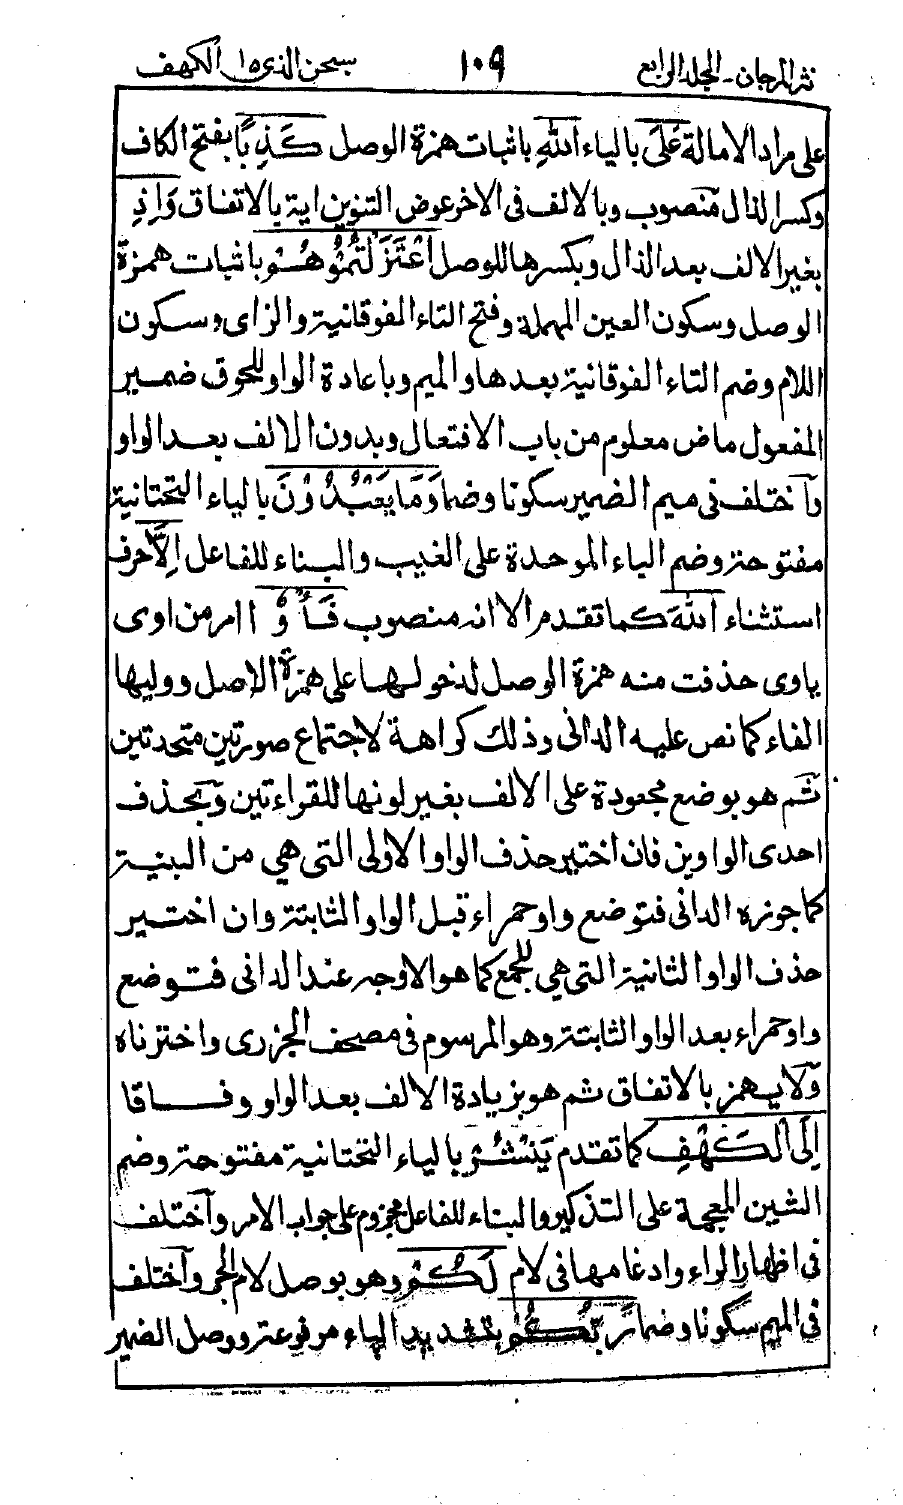 نثر المرجان - المجلد الرابع ١٠٩ سبحن الذى ١٥ الكهف
على مراد الامالة عَلَى بالياء اللهِ باثبات همزة الوصل كَذِبًا بفتح الكاف
وكسر الذال منصوب وبالالف فى الاخر عوض التنوين اية بالاتفاق وَاِذِ
بغير الالف بعد الذال وبكسرها للوصل اعْتَزَلْتُمُوْهُمْ باثبات همزة
الوصل وسكون العين المهملة وفتح التاء الفوقانية والزاى وسكون
اللام وضم التاء الفوقانية بعدها والميم وباعادة الواو للحوق ضمير
المفعول ماض معلوم من باب الافتعال وبدون الالف بعد الواو
واختلف فى ميم الضمير سكونا وضما وَمَا يَعْبُدُوْنَ بالياء التحتانية
مفتوحة وضم الباء الموحدة على الغيب والبناء للفاعل اِلَّا حرف
استثناء اللهَ كما تقدم الا انه منصوب فَأْوٗا امر من اوى
ياوى حذفت منه همزة الوصل لدخولها على همزة الاصل ووليها
الفاء كما نص عليه الدانى وذلك كراهة لاجتماع صورتين متحدتين
ثم هو بوضع مجعودة على الالف بغير لونها للقراءتين وبحذف
احدى الواوين فان اختير حذف الواو الاولى التى هي من البنية
كما جوزه الدانى فتوضع واو حمراء قبل الواو الثابتة وان اختير
حذف الواو الثانية التى هي للجمع كما هو الاوجه عند الدانى فتوضع
واو حمراء بعد الواو الثابتة وهو المرسوم فى مصحف الجزرى واخترناه
ولا يهمز بالاتفاق ثم هو بزيادة الالف بعد الواو وفاقا
اِلَى الْكَهْفِ كما تقدم يَنْشُرْ بالياء التحتانية مفتوحة وضم
الشين المعجمة على التذكير والبناء للفاعل مجزوم على جواب الامر واختلف
فى اظهار الراء وادغامها فى لام لَكُمْ وهو بوصل لام الجر واختلف
فى الميم سكونا وضما رَبُّكُمْ بتشديد الباء مرفوعة ووصل الضمير